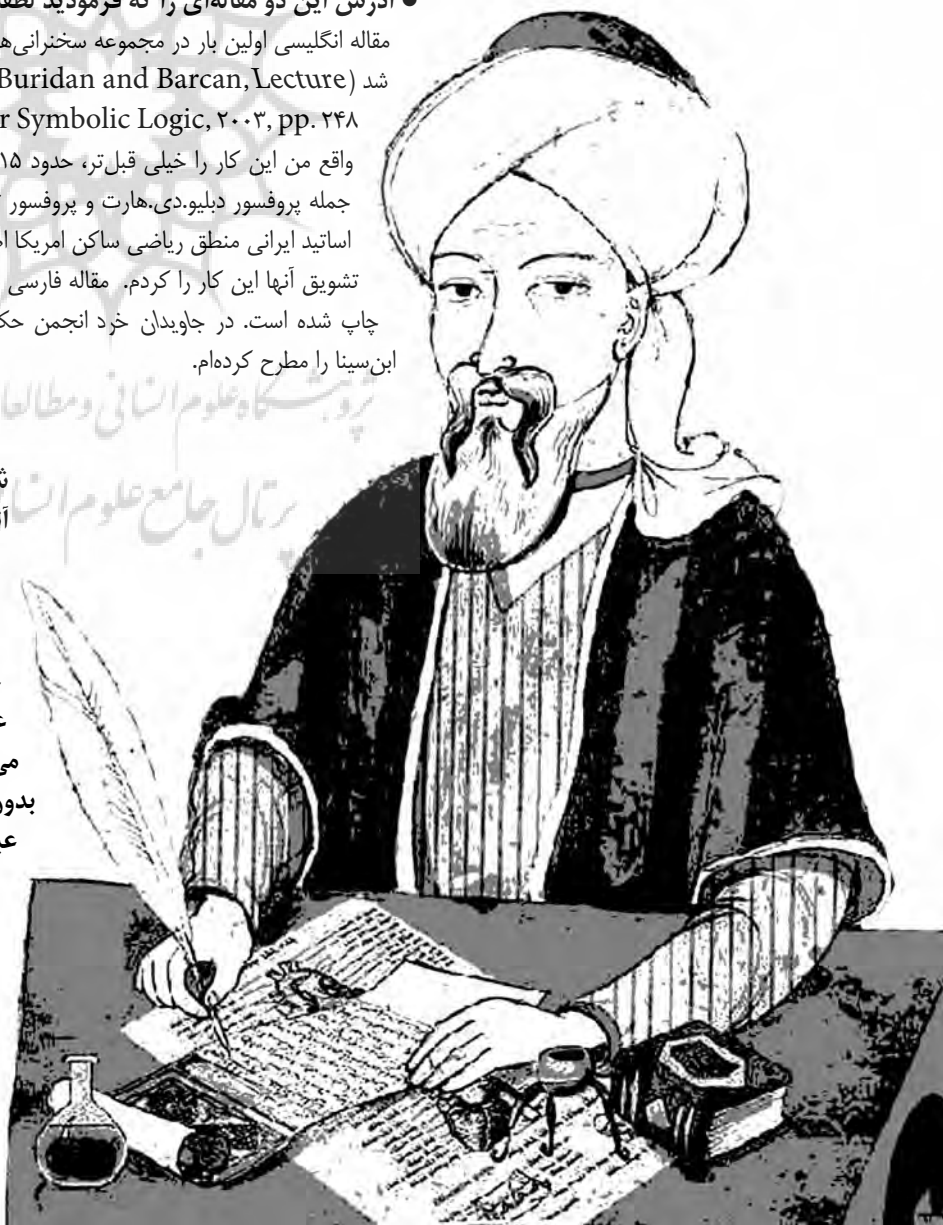 • آدرس این دو مقاله‌ای را که فرمودید لطفا
مقاله انگلیسی اولین بار در مجموعه سخنرانی‌ه
شد (Buridan and Barcan, Lecture
r Symbolic Logic, ۲۰۰۳, pp. ۲۴۸
واقع من این کار را خیلی قبل‌تر، حدود ۱۵
جمله پروفسور دبلیو.دی.هارت و پروفسور
اساتید ایرانی منطق ریاضی ساکن امریکا
تشویق آنها این کار را کردم. مقاله فارسی
چاپ شده است. در جاویدان خرد انجمن حک
ابن‌سینا را مطرح کرده‌ام.
پژوهشگاه علوم انسانی و مطالعا
پرتال جامع علوم انسا
بدور